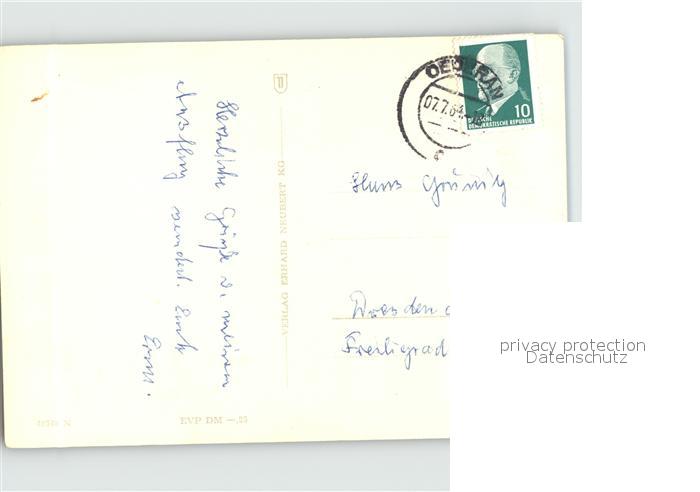 Herzliche Grüße v. meinem
Ausflug sendet Euch
Ernst.
VERLAG ERHARD NEUBERT KG
EVP DM —,25
OEDERAN
07.7.64
10
DEUTSCHE
DEMOKRATISCHE REPUBLIK
Hans
Dresden
Freiligrad
privacy protection
Datenschutz